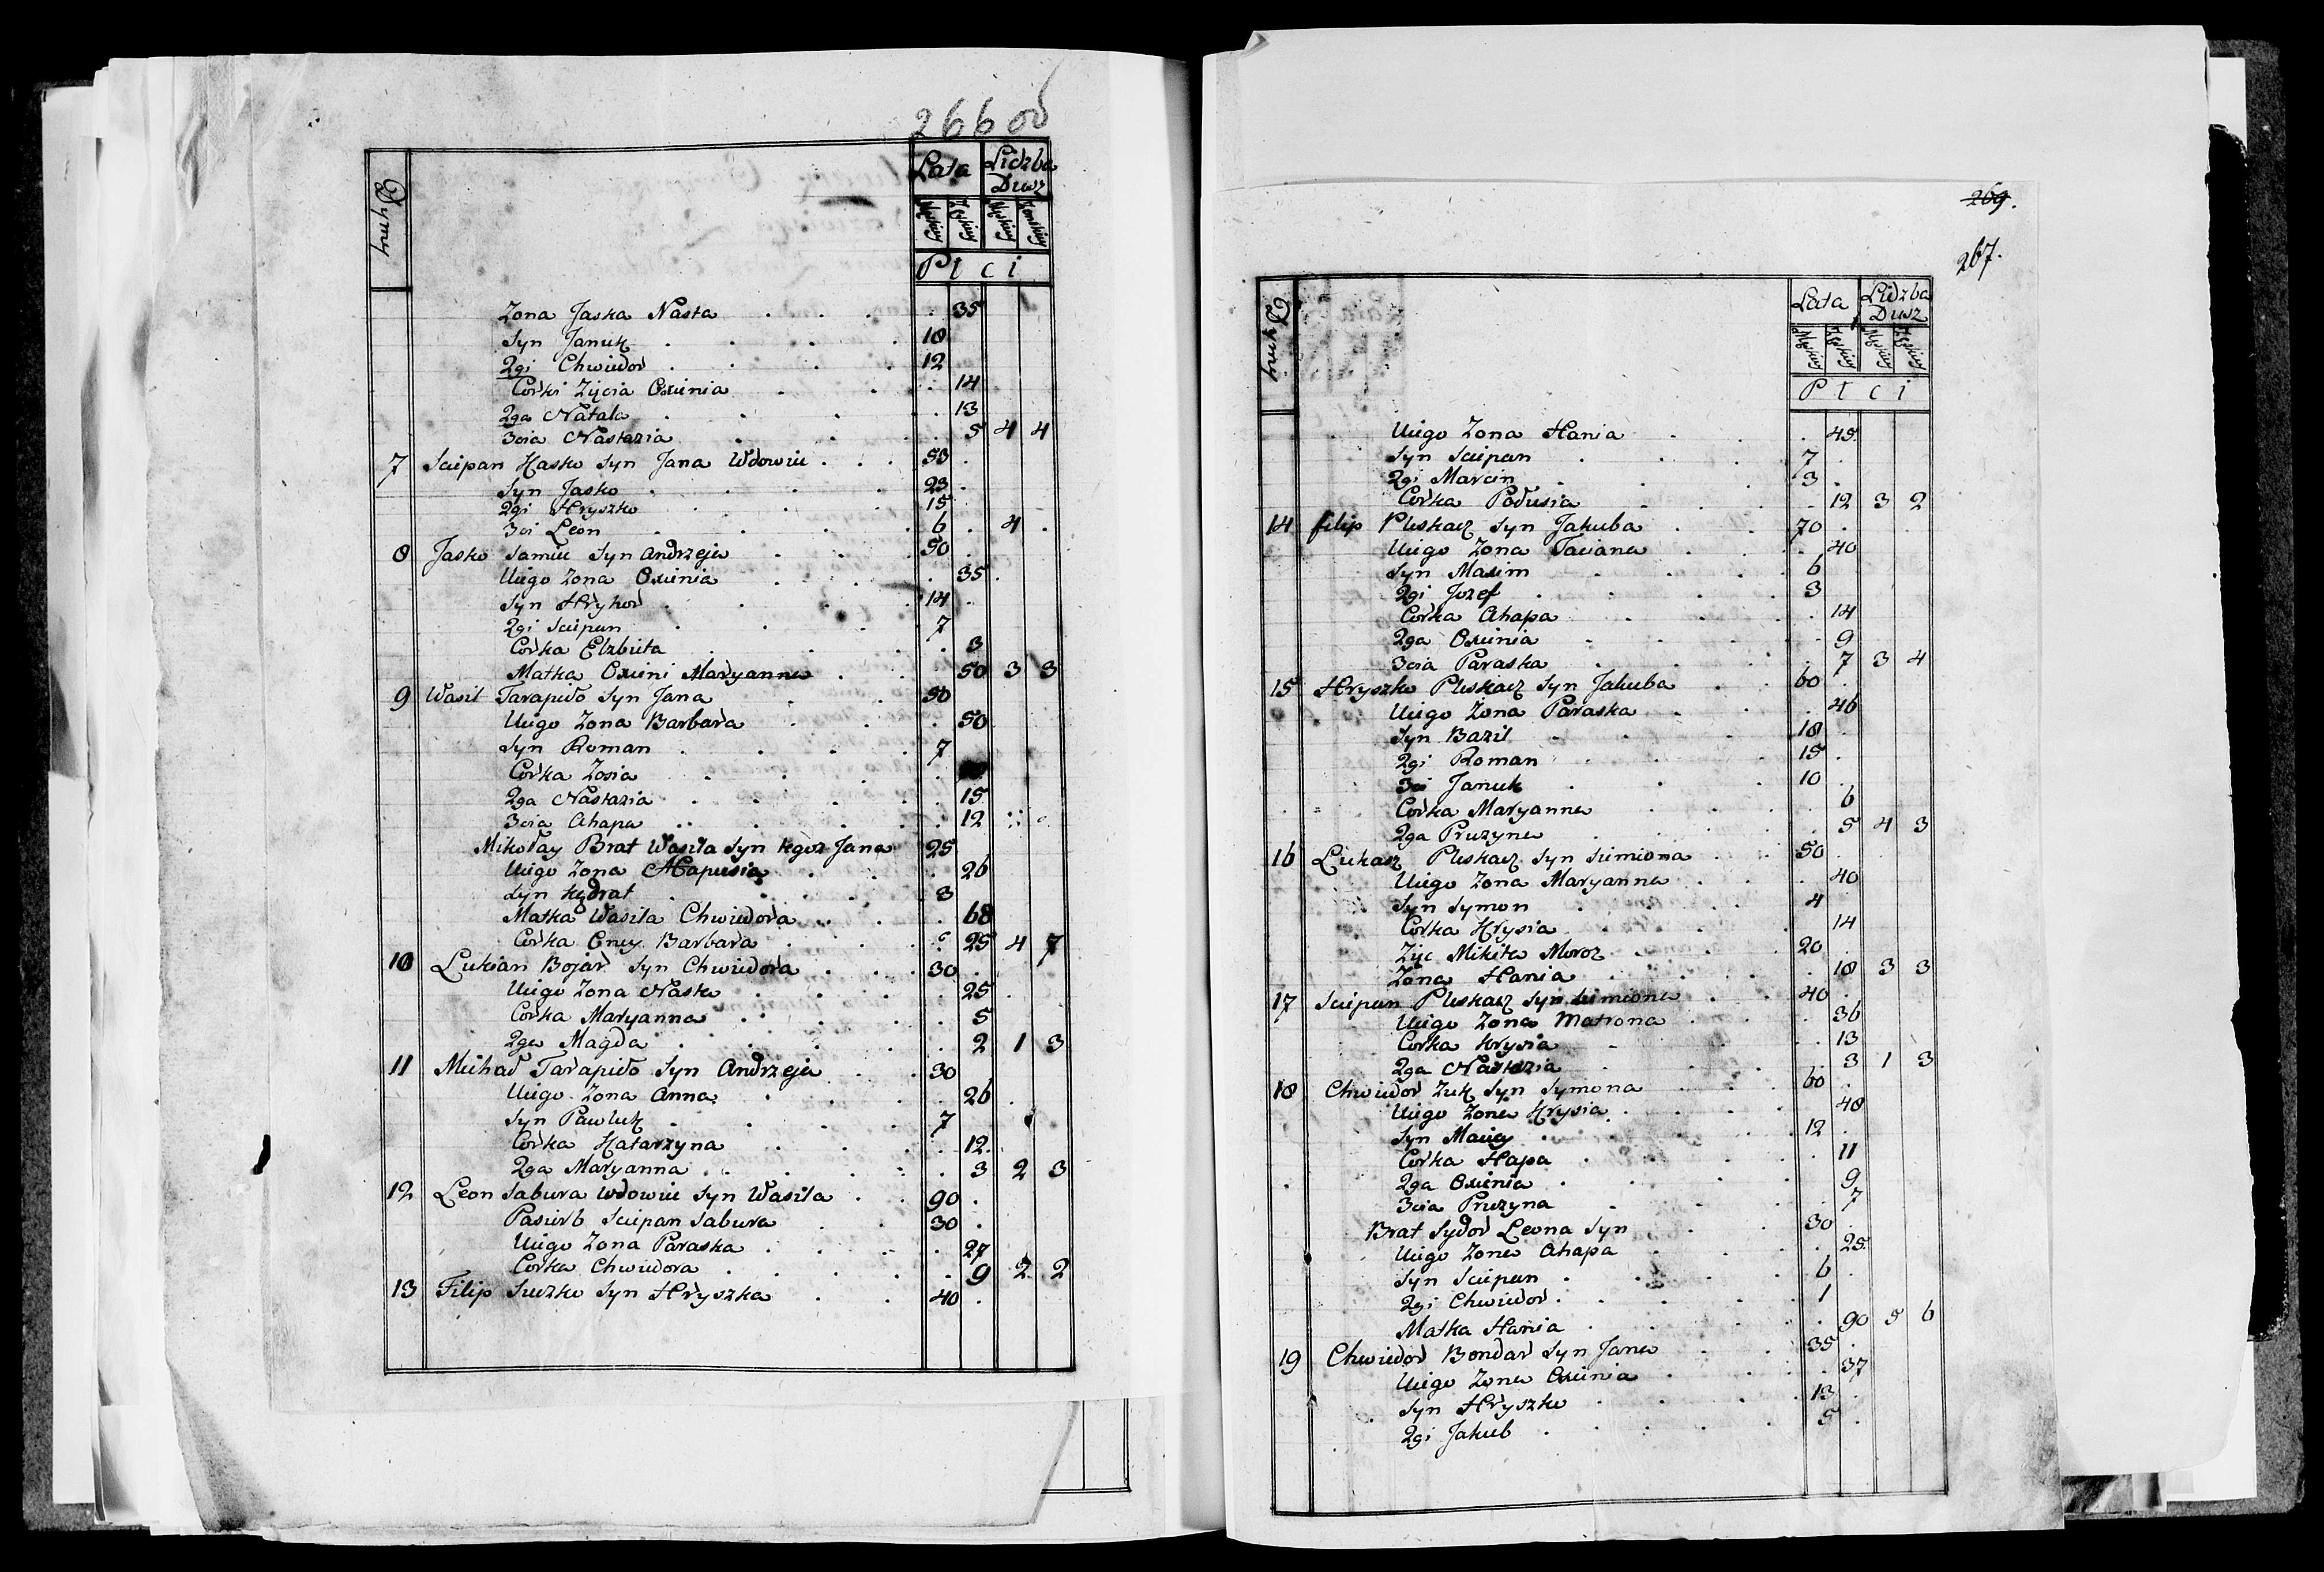 266 об
Dymy
Lata Liczba Dusz
Męskiey Żeńskiey Męskiey Żeńskiey
Płci
Zona Jaska Nasta . . . 35
Syn Januk . . . 18
2gi Chwiedor . . . 12
Corki Zięcia Oxienia . . . 14
2ga Natala . . . 13
3cia Nastazia . . . 5 4 4
7 Sciepan Hasko Syn Jana Wdowiec . . . 53
Syn Jasko . . . 23
2gi Hryszko . . . 15
3ci Leon . . . 6 4
8 Jasko Samiec Syn Andrzeja . . . 50
Uiego Zona Oxienia . . . 35
Syn Hryhor . . . 14
2gi Sciepan . . . 7
Corka Elzbieta . . . 3
Matka Oxieni Maryanna . . . 50 3 3
9 Wasil Tarapido Syn Jana . . . 50
Uiego Zona Barbara . . . 50
Syn Roman . . . 7
Corka Zosia . . .
2ga Nastazia . . . 15
3cia Ahapa . . . 12
Mikołay Brat Wasila Syn tegoz Jana 25
Uiego Zona Hapusia . . . 26
Syn Kędrat . . . 3
Matka Wasila Chwiedora . . . 68
Corka Oney Barbara . . . 25 4 7
10 Lukian Bojar Syn Chwiedora . . . 30
Uiego Zona Nasta . . . 25
Corka Maryanna . . . 5
2ga Magda . . . 2 1 3
11 Michał Tarapido Syn Andrzeja . . . 30
Uiego Zona Anna . . . 26
Syn Pawluk . . . 7
Corka Katarzyna . . . 12
2ga Maryanna . . . 3 2 3
12 Leon Sabura Wdowiec Syn Wasila . . . 90
Pasierb Sciepan Sabura . . . 30
Uiego Zona Paraska . . . 27
Corka Chwiedora . . . 9 2 2
13 Filip Syn Hryszka . . . 40
269.
267.
Dymy
Lata Liczba Dusz
Męskiey Żeńskiey Męskiey Żeńskiey
Płci
Uiego Zona Hania . . . 45
Syn Sciepan . . . 7
2gi Marcin . . . 3
Corka Padusia . . . 12 3 2
14 Filip Pleskacz Syn Jakuba . . . 70
Uiego Zona Taciana . . . 40
Syn Maxim . . . 6
2gi Jozef . . . 3
Corka Ahapa . . . 14
2ga Oxienia . . . 9
3cia Paraska . . . 7 3 4
15 Hryszko Pleskacz Syn Jakuba . . . 60
Uiego Zona Paraska . . . 46
Syn Bazil . . . 18
2gi Roman . . . 15
3ci Januk . . . 10
Corka Maryanna . . . 6
2ga Pruzyna . . . 5 4 3
16 Lukasz Pleskacz Syn Siemiona . . . 50
Uiego Zona Maryanna . . . 40
Syn Symon . . . 4
Corka Krysia . . . 14
Zięc Mikita Moroz . . . 20
Zona Hania . . . 18 3 3
17 Sciepan Pleskacz Syn Siemiona . . . 40
Uiego Zona Matrona . . . 36
Corka Krysia . . . 13
2ga Nastazia . . . 3 1 3
18 Chwiedor Zuk Syn Symona . . . 60
Uiego Zona Krysia . . . 48
Syn Maciey . . . 12
Corka Hapa . . . 11
2ga Oxienia . . . 9
3cia Pruzyna . . . 7
Brat Sydor Leona Syn . . . 30
Uiego Zona Ahapa . . . 25
Syn Sciepan . . . 6
2gi Chwiedor . . . 1
Matka Hania . . . 90 5 6
19 Chwiedor Bondar Syn Jana . . . 35
Uiego Zona Oxienia . . . 37
Syn Hryszko . . . 13
2gi Jakub . . . 5